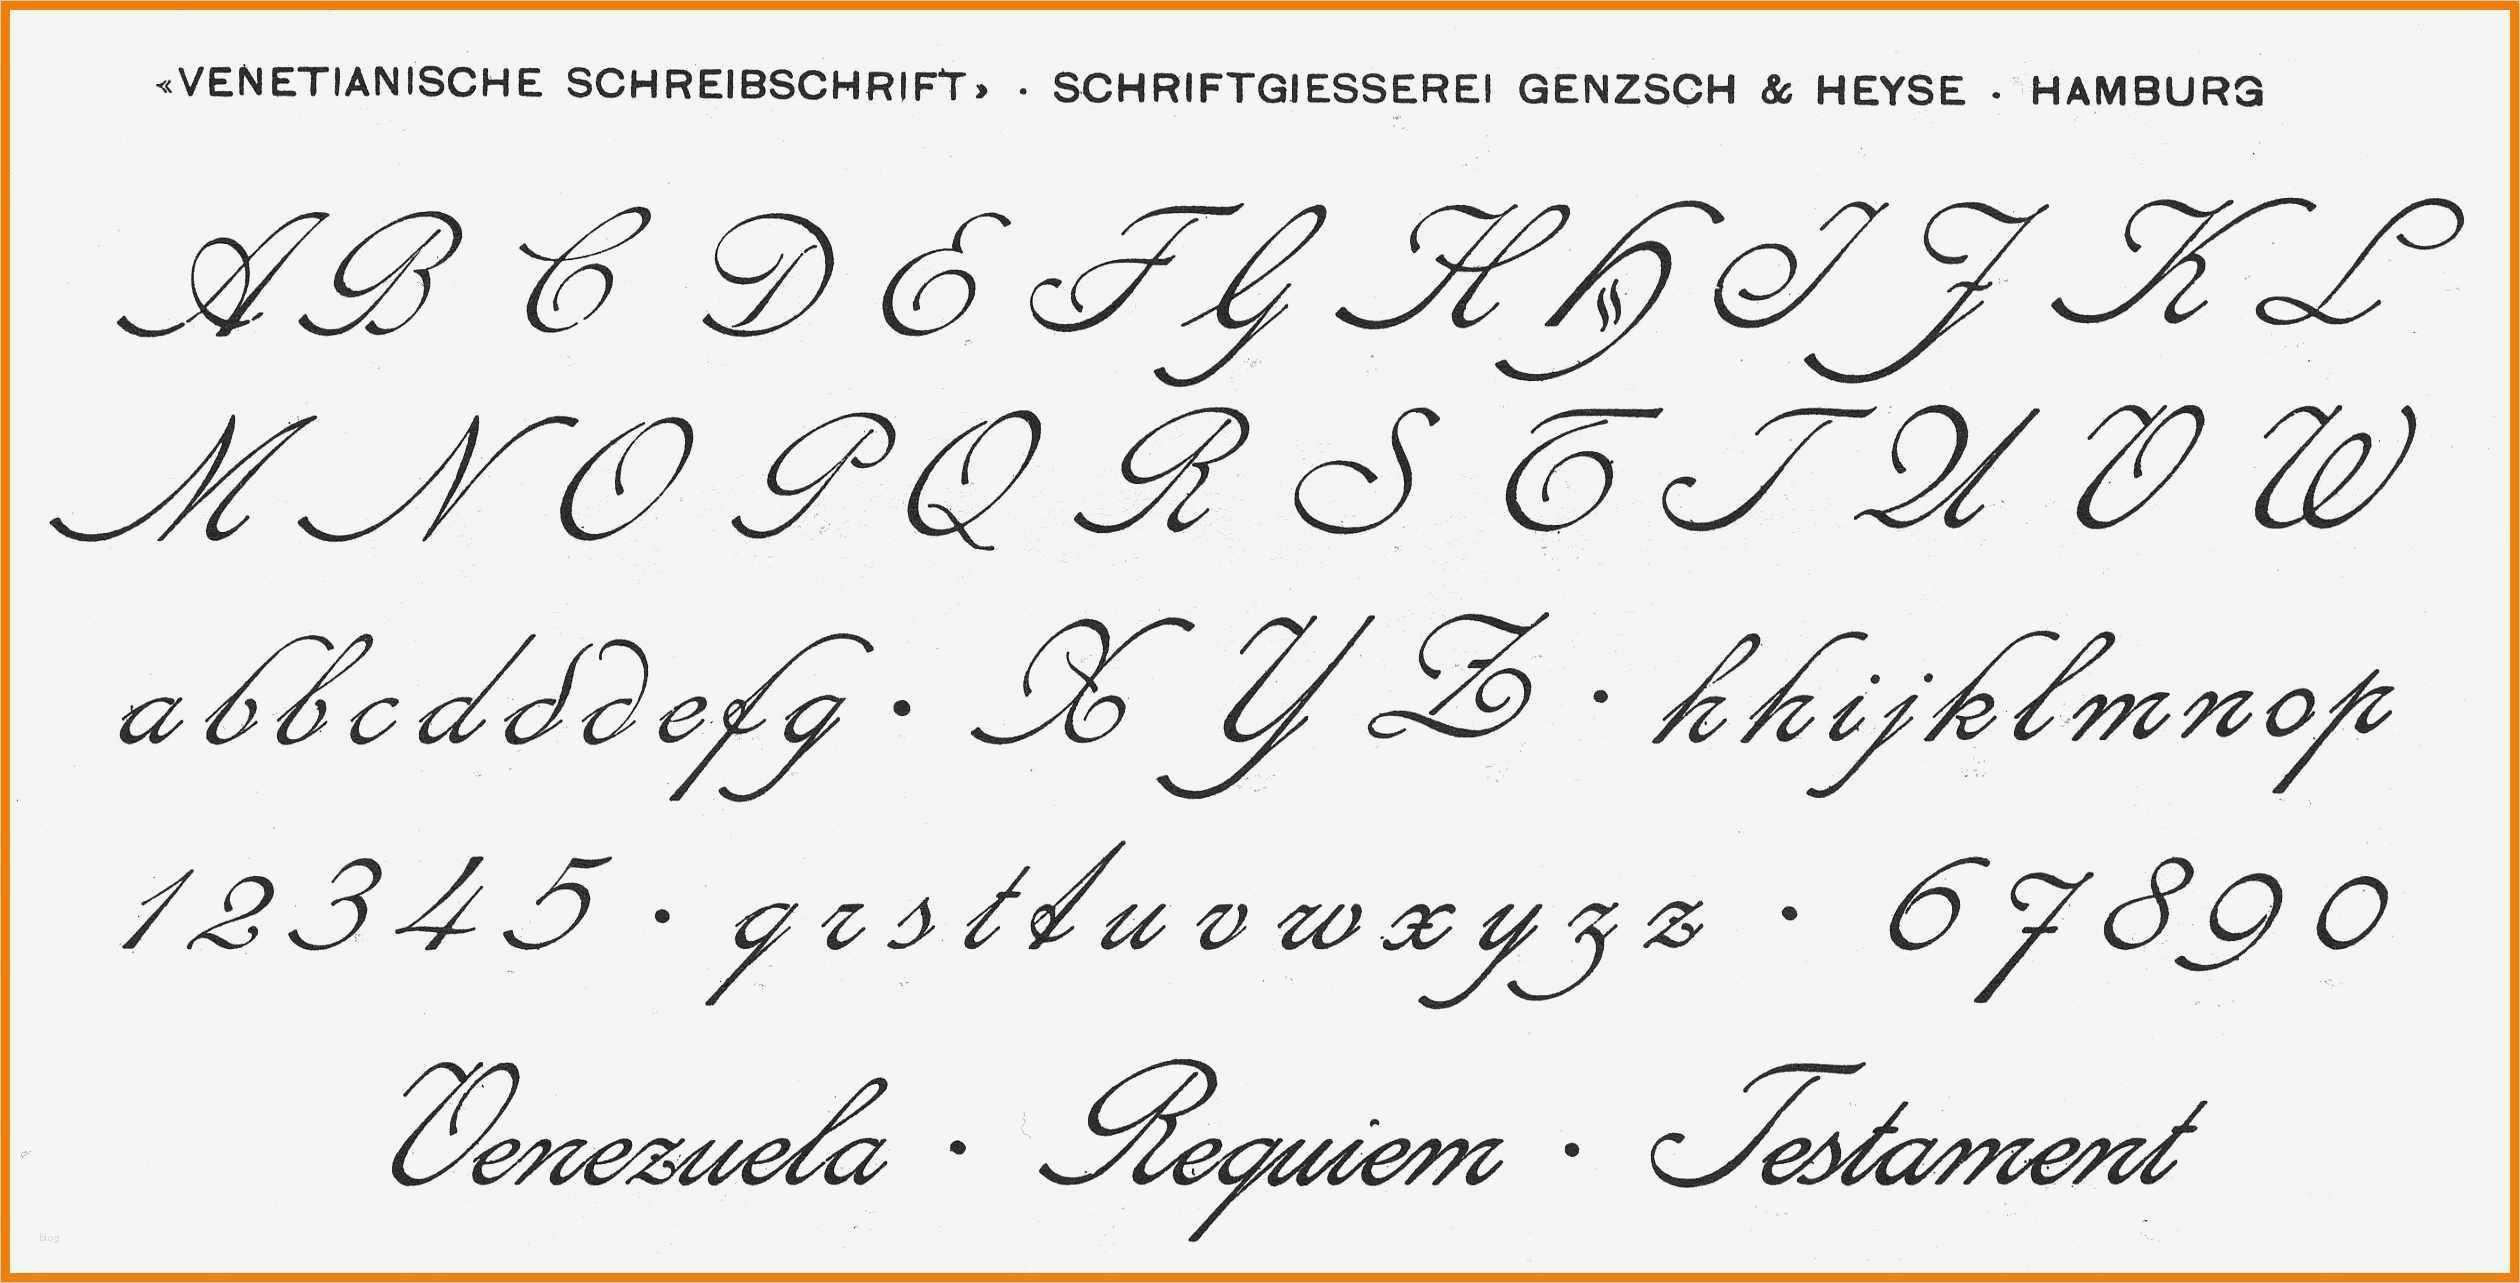 «VENETIANISCHE SCHREIBSCHRIFT» · SCHRIFTGIESSEREI GENZSCH & HEYSE · HAMBURG
A B C D E F G H H I J K L
M N O P Q R S T T U V W
a b b c d d d e f g · X Y Z · h h i j k l m n o p
1 2 3 4 5 · q r s t t u v w x y z z · 6 7 8 9 0
Venezuela · Requiem · Testament
blog